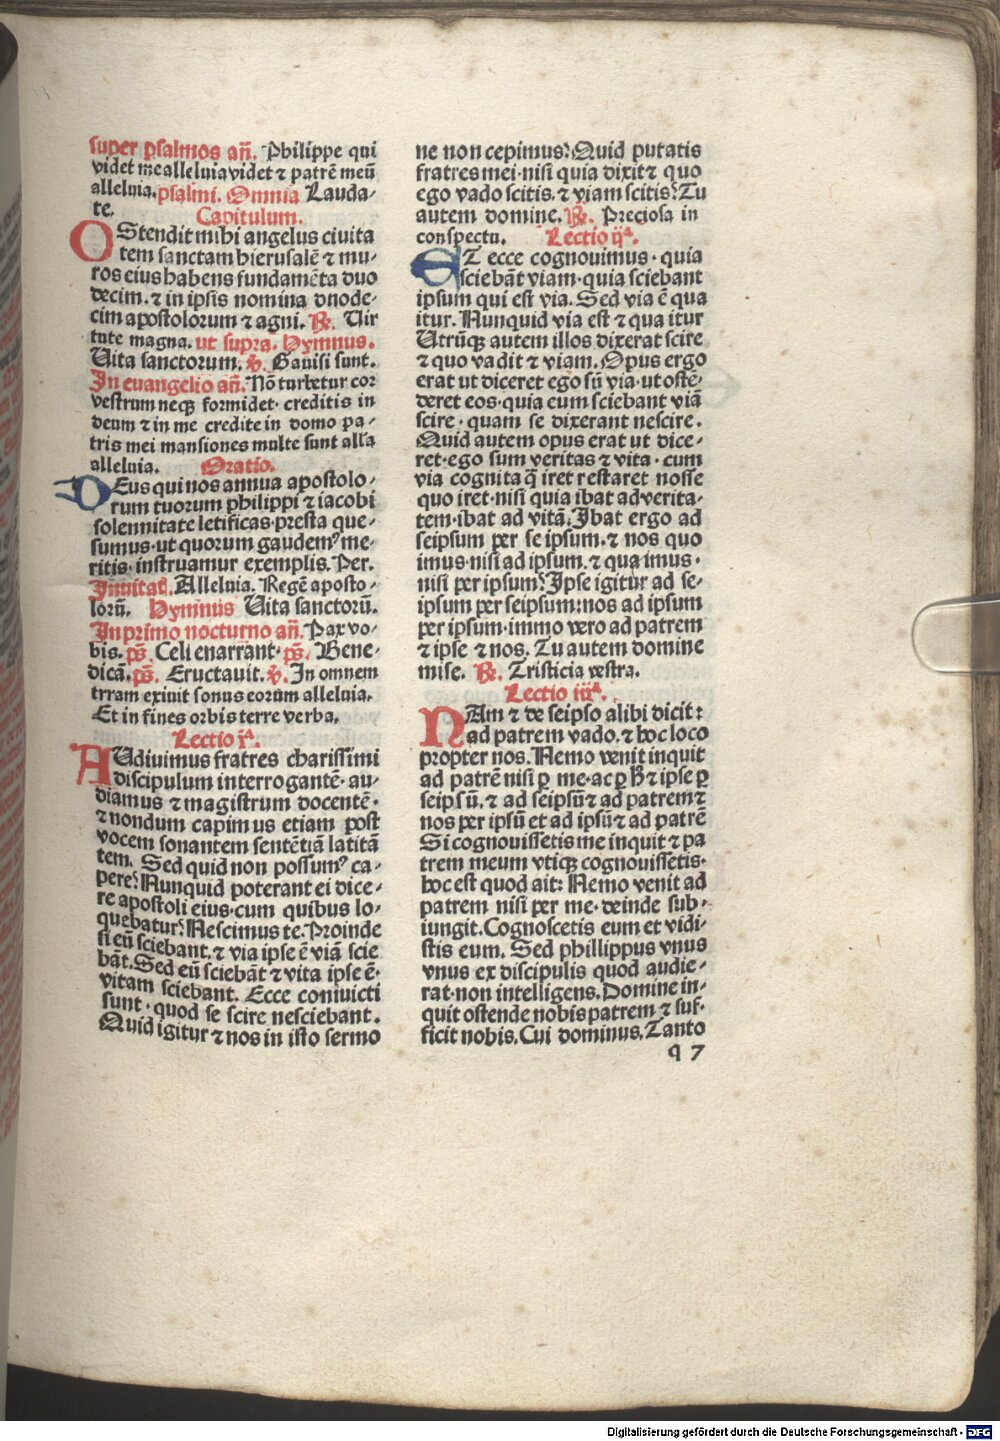 super psalmos añ. Philippe qui
videt me alleluia videt ⁊ patrē meū
alleluia. psalmi. Omnia Lauda-
te. Capitulum.
OStendit mihi angelus ciuita
tem sanctam hierusalē ⁊ mu-
ros eius habens fundamēta duo
decim. ⁊ in ipsis nomina dnode-
cim apostolorum ⁊ agni. ℟. Uir
tute magna. ut supra. Hymnus.
Uita sanctorum. ℣. Gauisi sunt.
In euangelio añ. Nō turbetur cor
vestrum neqȝ formidet· creditis in
deum ⁊ in me credite in domo pa-
tris mei mansiones multe sunt alľa
alleluia. Oratio.
DEus qui nos annua apostolo-
rum tuorum philippi ⁊ iacobi
solennitate letificas·presta que-
sumus·ut quorum gaudemꝰ me-
ritis·instruamur exemplis. Per.
Inuitaƀ. Alleluia. Regē aposto-
lorū. Hymnus Uita sanctorū.
In primo nocturno añ. Pax vo-
bis. ps̄. Celi enarrant· ps̄. Bene-
dicā. ps̄. Eructauit. ℣. In omnem
trram exiuit sonus eorum alleluia.
Et in fines orbis terre verba.
Lectio jª.
AUdiuimus fratres charissimi
discipulum interrogantē· au-
diamus ⁊ magistrum docentē·
⁊ nondum capimus etiam post
vocem sonantem sentētiā latitā
tem. Sed quid non possumꝰ ca-
pere? Nunquid poterant ei dice-
re apostoli eius·cum quibus lo-
quebatur? Nescimus te. Proinde
si eū sciebant. ⁊ via ipse ē viā scie
bāt. Sed eū sciebāt ⁊ vita ipse ē·
vitam sciebant. Ecce conuicti
sunt· quod se scire nesciebant.
Quid igitur ⁊ nos in isto sermo
ne non cepimus? Quid putatis
fratres mei·nisi quia dixit ⁊ quo
ego vado scitis. ⁊ viam scitis? Tu
autem domine. ℟. Preciosa in
conspectu. Lectio ijª.
ET ecce cognouimus· quia
sciebāt viam·quia sciebant
ipsum qui est via. Sed via ē qua
itur. Nunquid via est ⁊ qua itur
Utrūqȝ autem illos dixerat scire
⁊ quo vadit ⁊ viam. Opus ergo
erat ut diceret ego sū via·ut ostē-
deret eos·quia eum sciebant viā
scire· quam se dixerant nescire.
Quid autem opus erat ut dice-
ret·ego sum veritas ⁊ vita· cum
via cognita q̄ iret restaret nosse
quo iret·nisi quia ibat ad verita-
tem·ibat ad vitā. Ibat ergo ad
seipsum per se ipsum. ⁊ nos quo
imus·nisi ad ipsum. ⁊ qua imus·
nisi per ipsum? Ipse igitur ad se-
ipsum per seipsum:nos ad ipsum
per ipsum·immo vero ad patrem
⁊ ipse ⁊ nos. Tu autem domine
mise. ℟. Tristicia vestra.
Lectio iijª.
NAm ⁊ de seipso alibi dicit:
ad patrem vado. ⁊ hoc loco
propter nos. Nemo venit inquit
ad patrē nisi ꝑ me·ac ꝑ hͦ ⁊ ipse ꝑ
seipsū. ⁊ ad seipsū ⁊ ad patrem ⁊
nos per ipsū et ad ipsū ⁊ ad patrē
Si cognouissetis me inquit ⁊ pa
trem meum vtiqȝ cognouissetis·
hoc est quod ait: Nemo venit ad
patrem nisi per me·deinde sub-
iungit. Cognoscetis eum et vidi-
stis eum. Sed phillippus vnus
vnus ex discipulis quod audie-
rat·non intelligens. Domine in-
quit ostende nobis patrem ⁊ suf-
ficit nobis. Cui dominus. Tanto
q 7
Digitalisierung gefördert durch die Deutsche Forschungsgemeinschaft - DFG